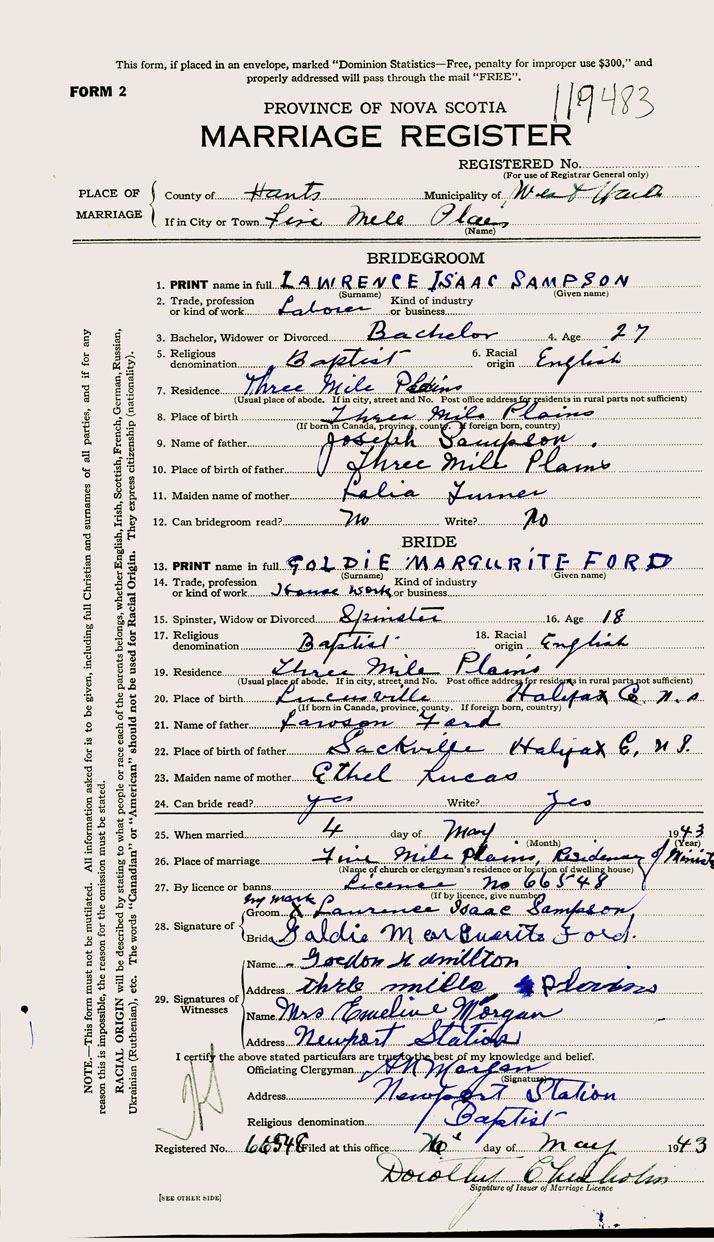 This form, if placed in an envelope, marked “Dominion Statistics—Free, penalty for improper use $300,” and
properly addressed will pass through the mail “FREE”.
FORM 2
119483
PROVINCE OF NOVA SCOTIA
MARRIAGE REGISTER
REGISTERED No.
(For use of Registrar General only)
PLACE OF MARRIAGE
County of Hants Municipality of West Hants
If in City or Town Five Mile Plains
(Name)
BRIDEGROOM
1. PRINT name in full LAWRENCE ISAAC SAMPSON
(Surname) (Given name)
2. Trade, profession or kind of work Laborer Kind of industry or business
3. Bachelor, Widower or Divorced Bachelor 4. Age 27
5. Religious denomination Baptist 6. Racial origin English
7. Residence Three Mile Plains
(Usual place of abode. If in city, street and No. Post office address for residents in rural parts not sufficient)
8. Place of birth Three Mile Plains
(If born in Canada, province, county. If foreign born, country)
9. Name of father Joseph Sampson.
10. Place of birth of father Three Mile Plains
11. Maiden name of mother Lalia Turner
12. Can bridegroom read? No Write? No
BRIDE
13. PRINT name in full GOLDIE MARGURITE FORD
(Surname) (Given name)
14. Trade, profession or kind of work House work Kind of industry or business
15. Spinster, Widow or Divorced Spinster 16. Age 18
17. Religious denomination Baptist 18. Racial origin English
19. Residence Three Mile Plains
(Usual place of abode. If in city, street and No. Post office address for residents in rural parts not sufficient)
20. Place of birth Lucusville Halifax C. N.S
(If born in Canada, province, county. If foreign born, country)
21. Name of father Lawson Ford
22. Place of birth of father Sackville Halifax C. N S.
23. Maiden name of mother Ethel Lucas
24. Can bride read? yes Write? Yes
25. When married 4 day of May 1943
(Month) (Year)
26. Place of marriage Five Mile Plains, Residence of Minister
(Name of church or clergyman's residence or location of dwelling house)
27. By licence or banns Licence No 66548
(If by licence, give number)
my mark
28. Signature of Groom X Laurence Isaac Sampson
Bride Goldie Marguerite Ford.
29. Signatures of Witnesses
Name Gordon Hamillton
Address thre mills Plains
Name Mrs Emeline Morgan
Address Newport Station
I certify the above stated particulars are true to the best of my knowledge and belief.
Officiating Clergyman Morgan
(Signature)
Address Newport Station
Religious denomination Baptist
Registered No. 66548 Filed at this office day of May 1943
Dorothy Chisholm
Signature of Issuer of Marriage Licence
[SEE OTHER SIDE]
NOTE.—This form must not be mutilated. All information asked for is to be given, including full Christian and surnames of all parties, and if for any
reason this is impossible, the reason for the omission must be stated.
RACIAL ORIGIN will be described by stating to what people or race each of the parents belongs, whether English, Irish, Scottish, French, German, Russian,
Ukrainian (Ruthenian), etc. The words “Canadian” or “American” should not be used for Racial Origin. They express citizenship (nationality).